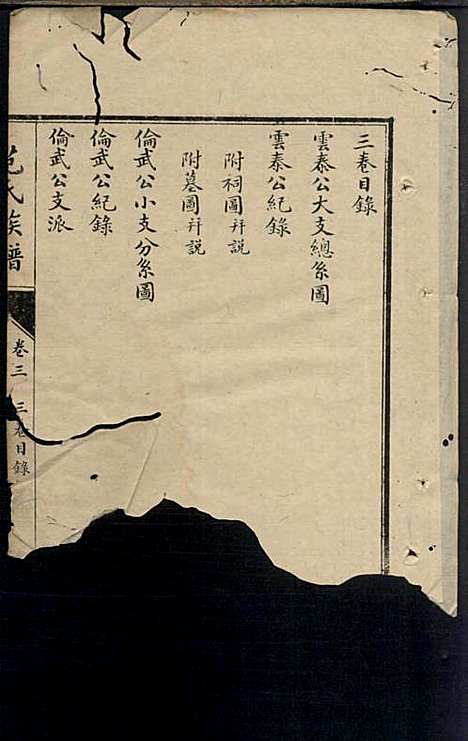 三卷目錄
雲泰公大支總系圖
雲泰公紀錄
附祠圖幷説
附墓圖幷説
倫武公小支分系圖
倫武公紀錄
倫武公支派
氏族譜
卷三
三卷目錄